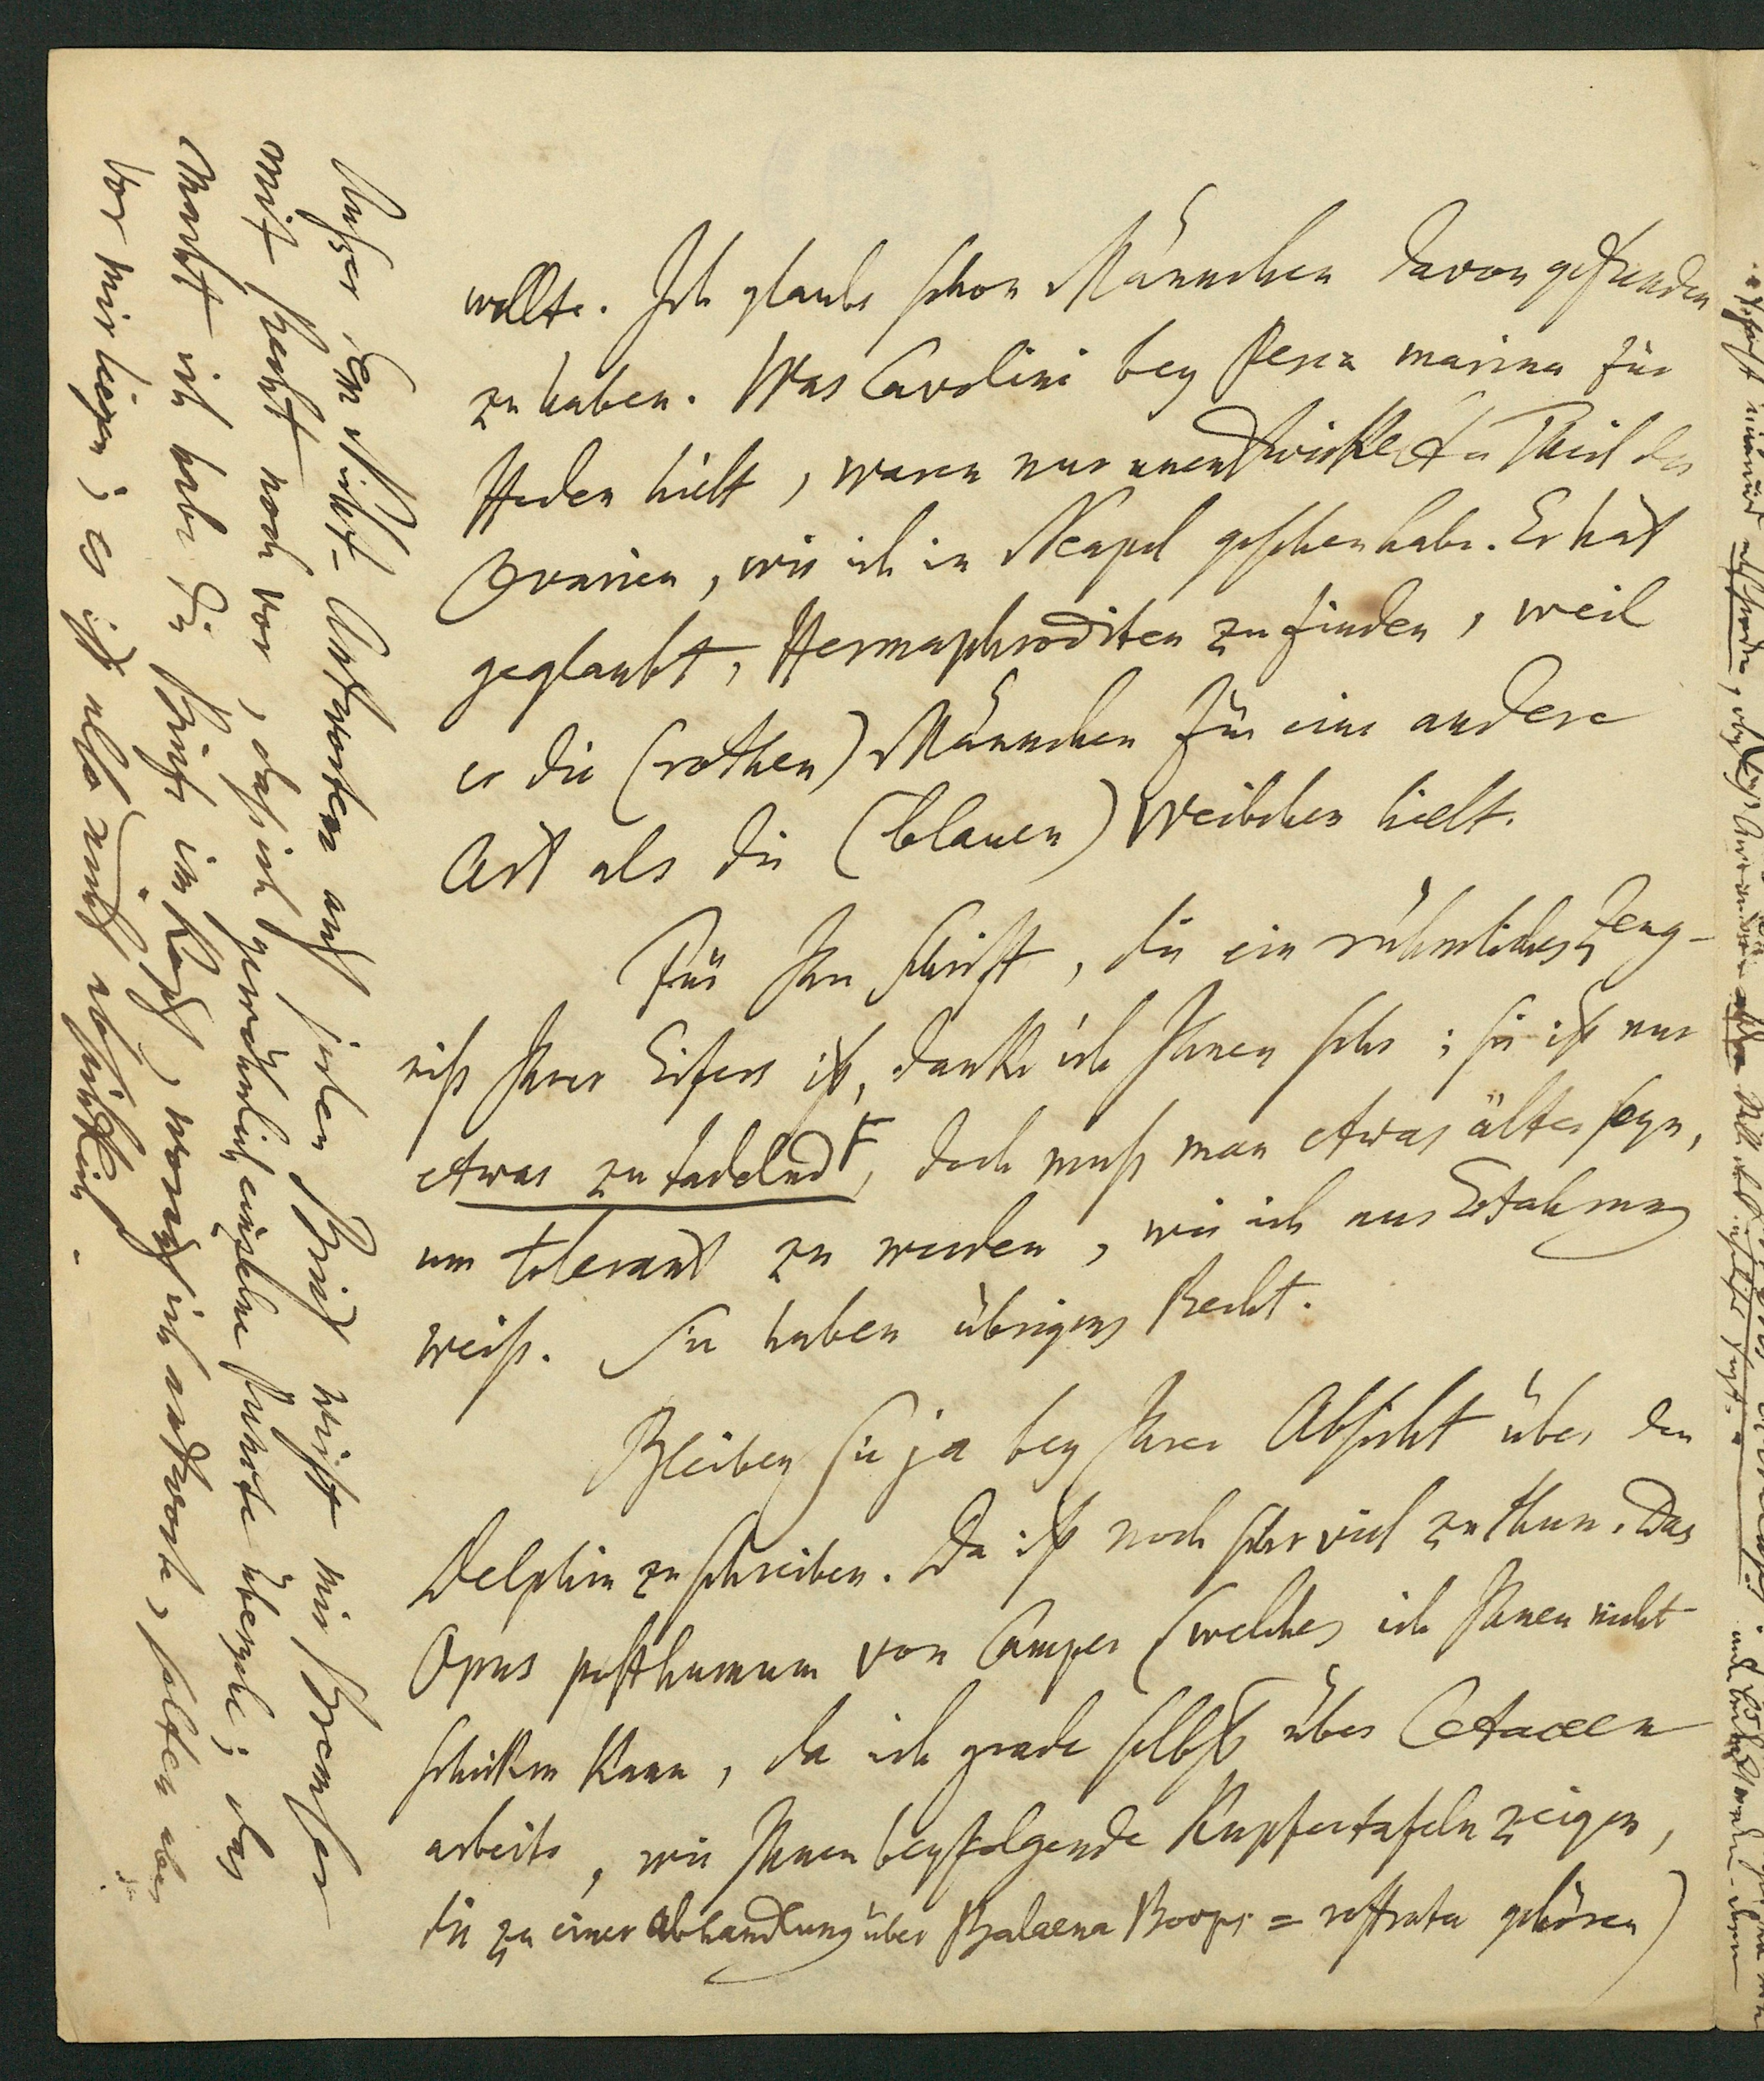 wollte. Ich glaube schon Männchen davon gefunden
zu haben. Was Cavolini bey Perca marina für
Hoden hielt, waren nur unentwickelte Theil der
Ovarien, wie ich in Neapel gesehen habe. Er hat
geglaubt, Hermaphroditen zu finden, weil
er die (rothen) Männchen für eine andere
Art als die (blauen) Weibchen hielt.
Für Ihre Schrift, die ein rühmliches Zeug-
niß Ihres Eifers ist, danke ich Ihnen sehr; sie ist nur
etwas zu tadelnd F, doch muß man etwas älter seyn,
um tolerant zu werden, wie ich aus Erfahrung
weiß. Sie haben übrigens Recht.
Bleiben Sie ja bey Ihrer Absicht über den
Delphin zu schreiben. Da ist noch sehr viel zu thun. Das
Opus posthumum von Camper (welches ich Ihnen nicht
schicken kann, da ich grade selbst über Cetaceen
arbeite, wie Ihnen beyfolgende Kupfertafeln zeigen,
die zu einer Abhandlung über Balaena Boops = rostrata gehören)
Unser Nicht-Antworten auf jeden Brief wirft mir Bremser
mit Recht noch vor, daß ich gewöhnlich einzelne Punkte übergehe; das
macht ich habe die Briefe im Kopf, worauf ich antworte, selten aber
vor mir liegen; es ist also nicht absichtlich.